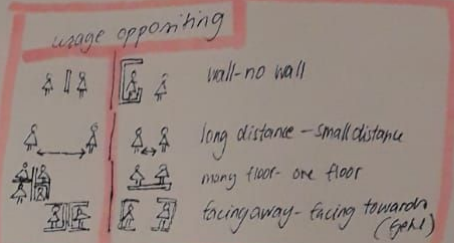 usage oppositing
wall-no wall
long distance - small distance
many floor - one floor
facing away - facing towards
(Gehl)